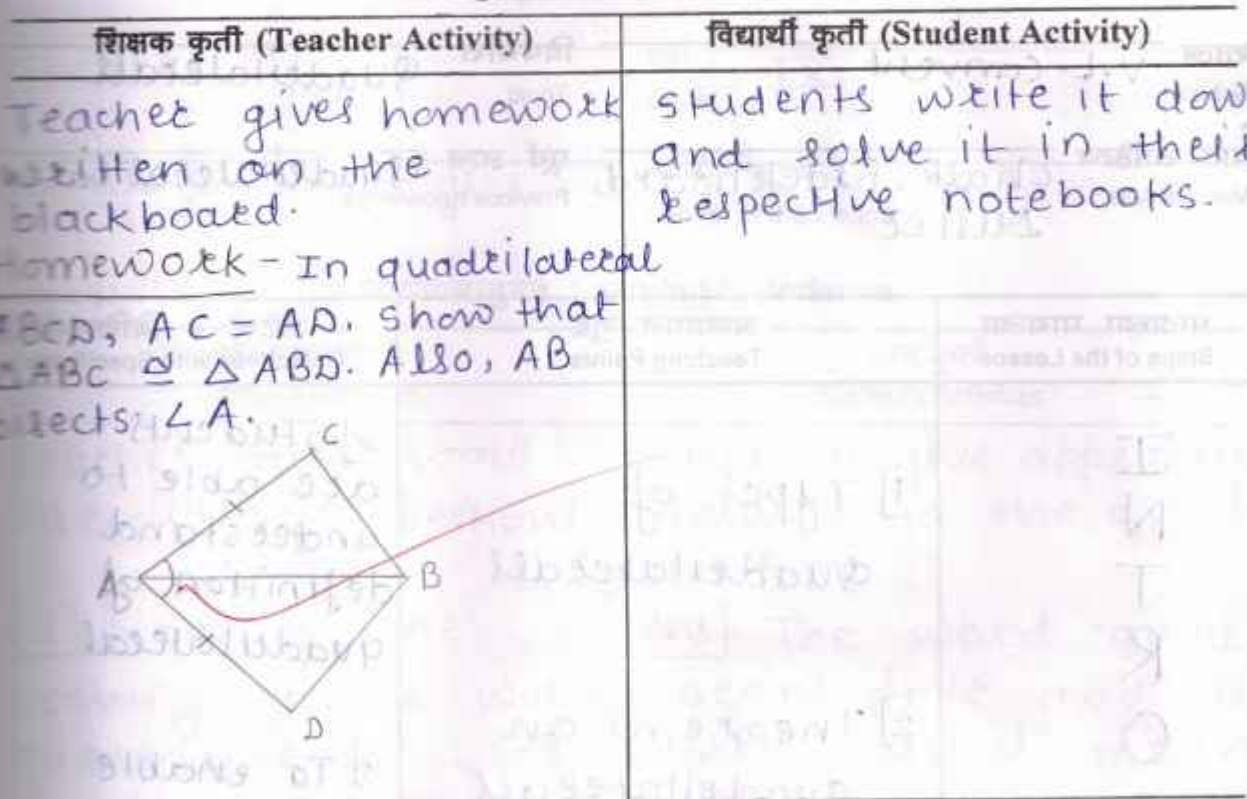 शिक्षक कृती (Teacher Activity)
विद्यार्थी कृती (Student Activity)
Teacher gives homework
written on the
blackboard.
Homework - In quadrilateral
ABCD, AC = AD. Show that
△ABC ≅ △ABD. Also, AB
bisects ∠A.
C
A
B
D
students write it dow
and solve it in their
respective notebooks.